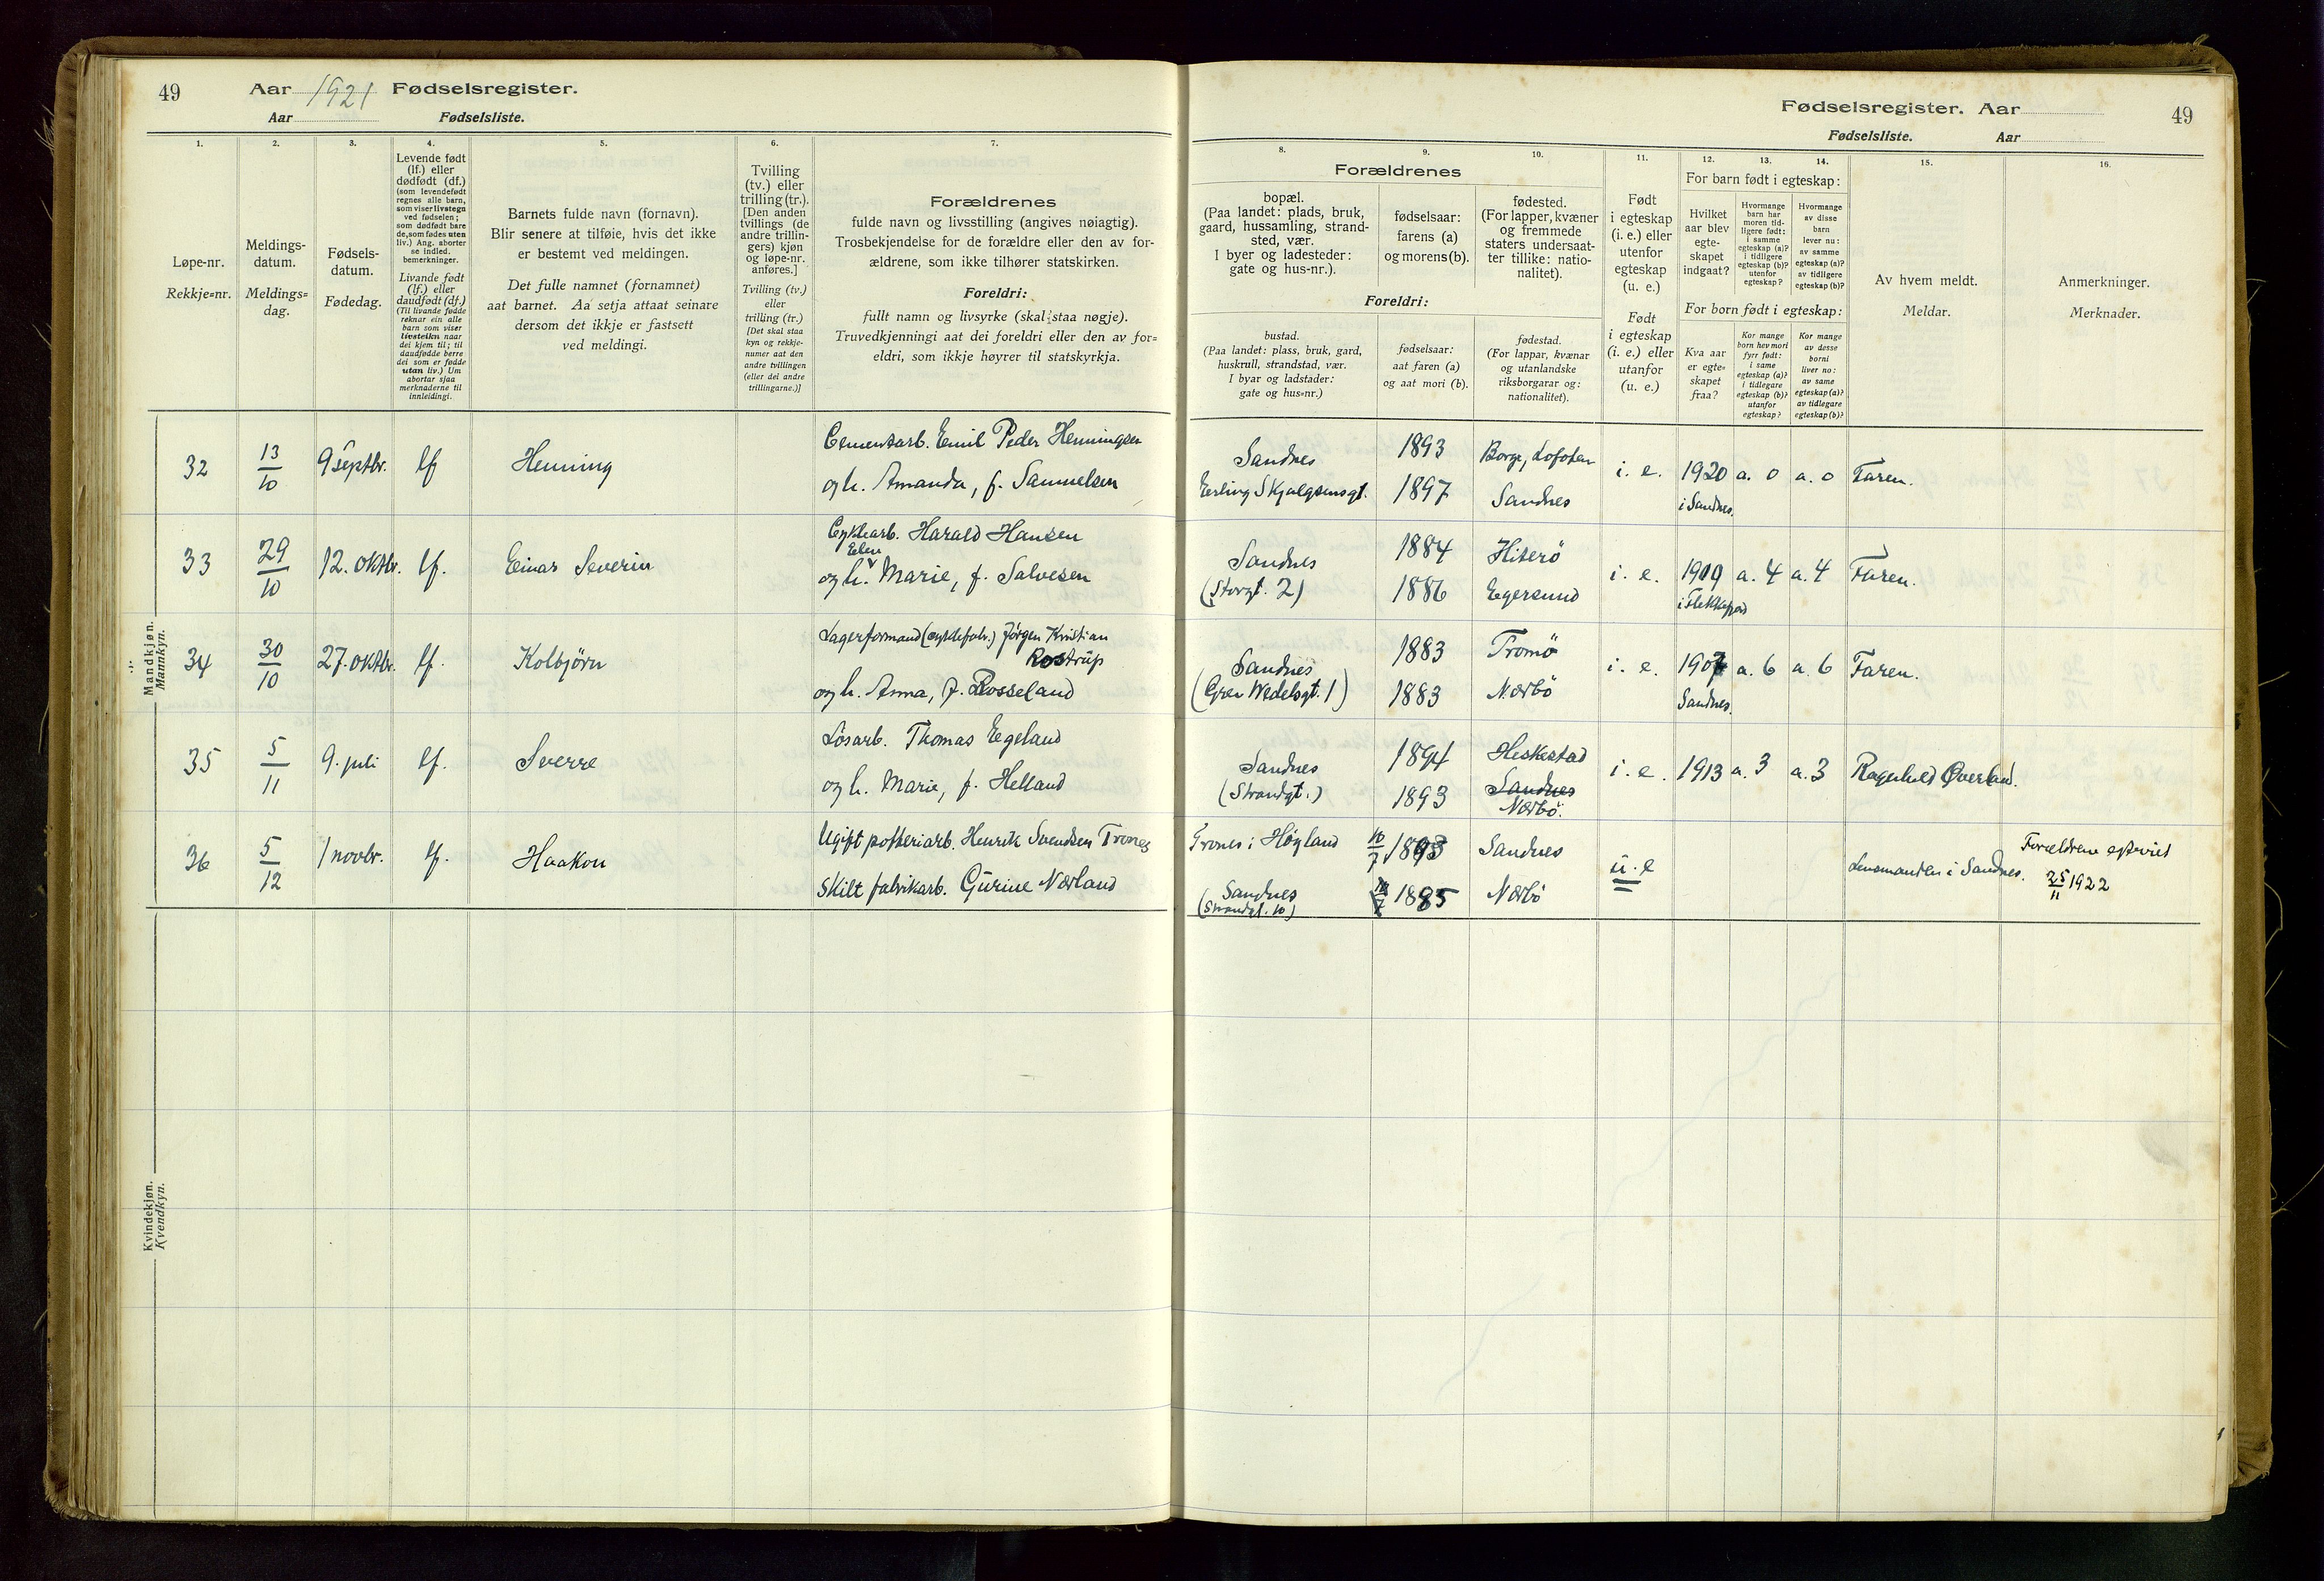 49
Aar 1921 Fødselsregister.
Aar Fødselsliste.
1.
2.
3.
4.
5.
6.
7.
Løpe-nr.
Rekkje=nr.
Meldings-
datum.
Meldings=
dag.
Fødsels-
datum.
Fødedag.
Levende født
(lf.) eller
dødfødt (df.)
(som levendefødt
regnes alle barn,
som viser livstegn
ved fødselen;
som dødfødt bare
de, som fødes uten
liv.) Ang. aborter
se indled.
bemerkninger.
Livande født
(lf.) eller
daudfødt (df.)
(Til livande fødde
reknar ein alle
barn som viser
livsteikn naar
dei kjem til; til
daudfødde berre
dei som er fødde
utan liv.) Um
abortar sjaa
merknaderne til
innleidingi.
Barnets fulde navn (fornavn).
Blir senere at tilføie, hvis det ikke
er bestemt ved meldingen.
Det fulle namnet (fornamnet)
aat barnet. Aa setja attaat seinare
dersom det ikkje er fastsett
ved meldingi.
Tvilling
(tv.) eller
trilling (tr.).
[Den anden
tvillings (de
andre trillin-
gers) kjøn
og løpe-nr.
anføres.]
Tvilling (tv.)
eller
trilling (tr.)
[Det skal staa
kyn og rekkje-
numer aat den
andre tvillingen
(eller dei andre
trillingarne.)]
Forældrenes
fulde navn og livsstilling (angives nøiagtig).
Trosbekjendelse for de forældre eller den av for-
ældrene, som ikke tilhører statskirken.
Foreldri:
fullt namn og livsyrke (skal staa nøgje).
Truvedkjenningi aat dei foreldri eller den av for=
eldri, som ikkje høyrer til statskyrkja.
Mandkjøn.
Mannkyn.
32 13/10 9 septbr. lf Henning Cementarb. Emil Peder Henningsen
og h. Amanda, f. Samuelsen
33 29/10 12. oktbr. lf. Einar Severin Cyklearb. Harald Hansen
Elen
og h. Marie, f. Salvesen
34 30/10 27. oktbr. lf. Kolbjörn Lagerformand (cyklefabr.) Jörgen Kristian
Rostrup
og h. Anna, f. Rosseland
35 5/11 9. juli lf. Sverre Løsarb. Thomas Eegeland
og h. Marie, f. Helland
36 5/12 1 novbr. lf. Haakon Ugift potteriarb. Henrik Svendsen Trones
Skilt fabrikarb. Gurine Nærland
Kvindekjøn.
Kvendkyn.
Fødselsregister. Aar
49
Fødselsliste. Aar
8.
9.
10.
11.
12.
13.
14.
15.
16.
Forældrenes
bopæl.
(Paa landet: plads, bruk,
gaard, hussamling, strand-
sted, vær.
I byer og ladesteder:
gate og hus-nr.).
fødselsaar:
farens (a)
og morens (b).
fødested.
(For lapper, kvæner
og fremmede
staters undersaat-
ter tillike: natio-
nalitet).
Foreldri:
bustad.
(Paa landet: plass, bruk, gard,
huskrull, strandstad, vær.
I byar og ladstader:
gate og hus=nr.)
fødselsaar:
aat faren (a)
og aat mori (b).
fødestad.
(For lappar, kvænar
og utanlandske
riksborgarar og:
nationalitet).
Født
i egteskap
(i. e.) eller
utenfor
egteskap
(u. e.)
Født
i egteskap
(i. e.) eller
utanfor
(u. e.)
For barn født i egteskap:
Hvilket
aar blev
egte-
skapet
indgaat?
Hvormange
barn har
moren tid-
ligere født:
i samme
egteskap (a)?
i tidligere
egteskap (b)?
utenfor
egteskap?
Hvormange
av disse
barn
lever nu:
av samme
egteskap (a)?
av tidligere
egteskap (b)?
For born født i egteskap:
Kva aar
er egte=
skapet
fraa?
Kor mange
born hev mori
fyrr født:
i same
egteskap (a)?
i tidlegare
egteskap (b)?
utanfor
egteskap?
Kor mange
av desse
borni
liver no:
av same
egteskap (a)?
av tidlegare
egteskap (b)?
Av hvem meldt.
Meldar.
Anmerkninger.
Merknader.
Sandnes 1893 Borge, Lofoten i. e. 1920 a. 0 a. 0 Faren.
Erling Skjalgsonsgt. 1897 Sandnes i Sandnes.
Sandnes 1884 Hiterö i. e. 1909 a. 4 a. 4 Faren.
(Storgt. 2) 1886 Egersund i Flekkefjord
Sandnes 1883 Tromö i. e. 1907 a. 6 a. 6 Faren.
(Grev Wedelsgt. 1) 1883 Nærbö Sandnes.
Sandnes 1894 Heskestad i. e. 1913 a. 3 a. 3 Ragnhild Överland.
(Strandgt.) 1893 Sandnes
Nærbö.
Trones i Høyland 10/7 1893 Sandnes u. e Lensmanden i Sandnes. Forældrene egteviet
25/11 1922
Sandnes 1885 Nærbö
(Strandgt. 10)